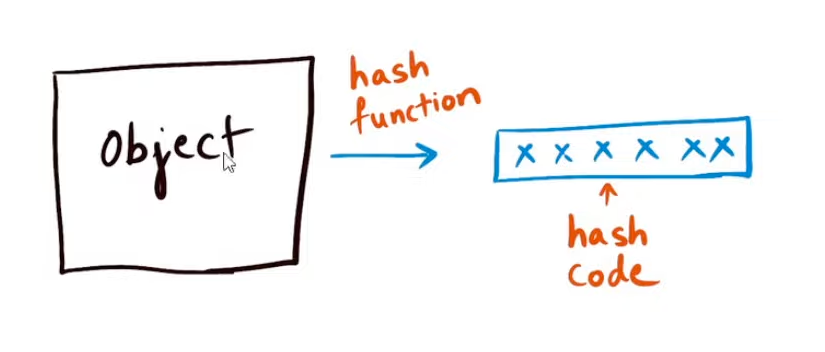 Object
hash
function
x x x x x x
hash
code